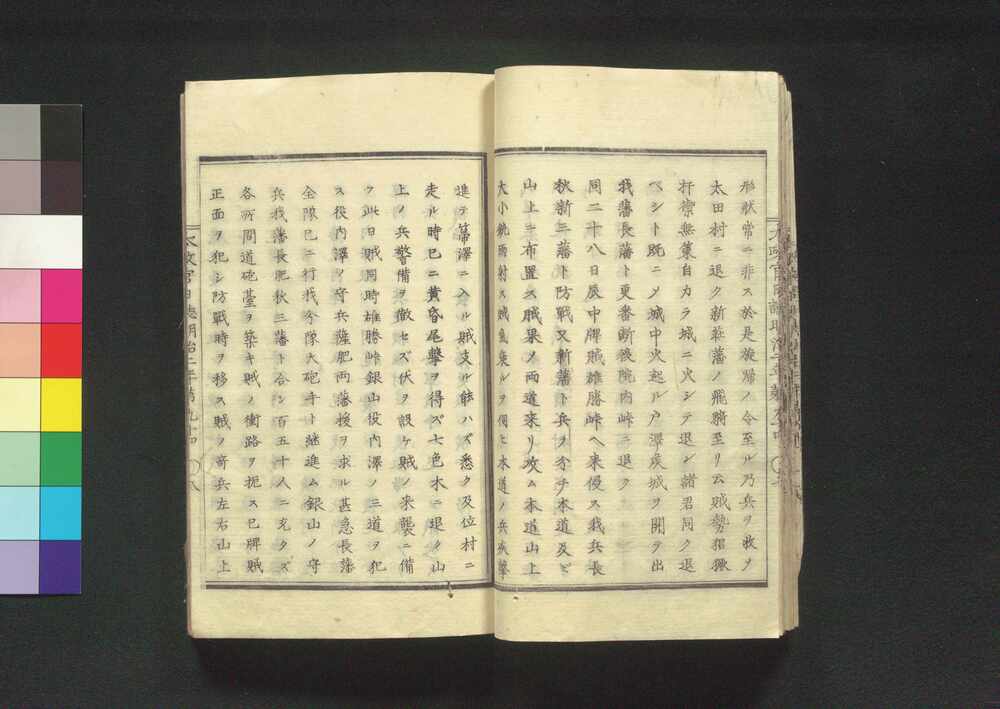 形狀常ニ非ス於是旋歸ノ令至ル乃兵ヲ收メ
太田村ニ退ク新莊藩ノ飛騎至リ云賊勢猖獗
扞禦無策自カラ城ニ火シテ退シ諸君同ク退
ヘシト既ニメ城中火起ル戸澤矦城ヲ開テ出
我藩長藩ト更番斷後院内峠ニ退ク
同二十八日辰中牌賊雄勝峠ヘ来侵ス我兵長
秋新三藩ト防戰又新藩ト兵ヲ分チ本道及ビ
山上ニ布置ス賊果ノ両道来リ攻ム本道山上
大小銃雨射ス賊氣衰ルヲ伺ヒ本道ノ兵疾撃
進テ蒂澤ニ入ル賊支ル能ハズ悉ク及位村ニ
走ル時已ニ黄昏尾撃ヲ得ズ七色木ニ退ク山
上ノ兵警備ヲ徹セズ伏ヲ設ケ賊ノ来襲ニ備
フ此日賊同時雄勝峠銀山役内澤ノ三道ヲ犯
ス役内澤ヲ守兵薩肥両藩援ヲ求ル甚急長藩
全隊已ニ行我今隊大砲寺ト継進ム銀山ノ守
兵我藩長肥秋三藩ト合シ百五十人ニ充タズ
各所間道砲臺ヲ築キ賊ノ衝路ヲ扼ス巳牌賊
正面ヲ犯シ防戰時ヲ移ス賊ノ奇兵左右山上